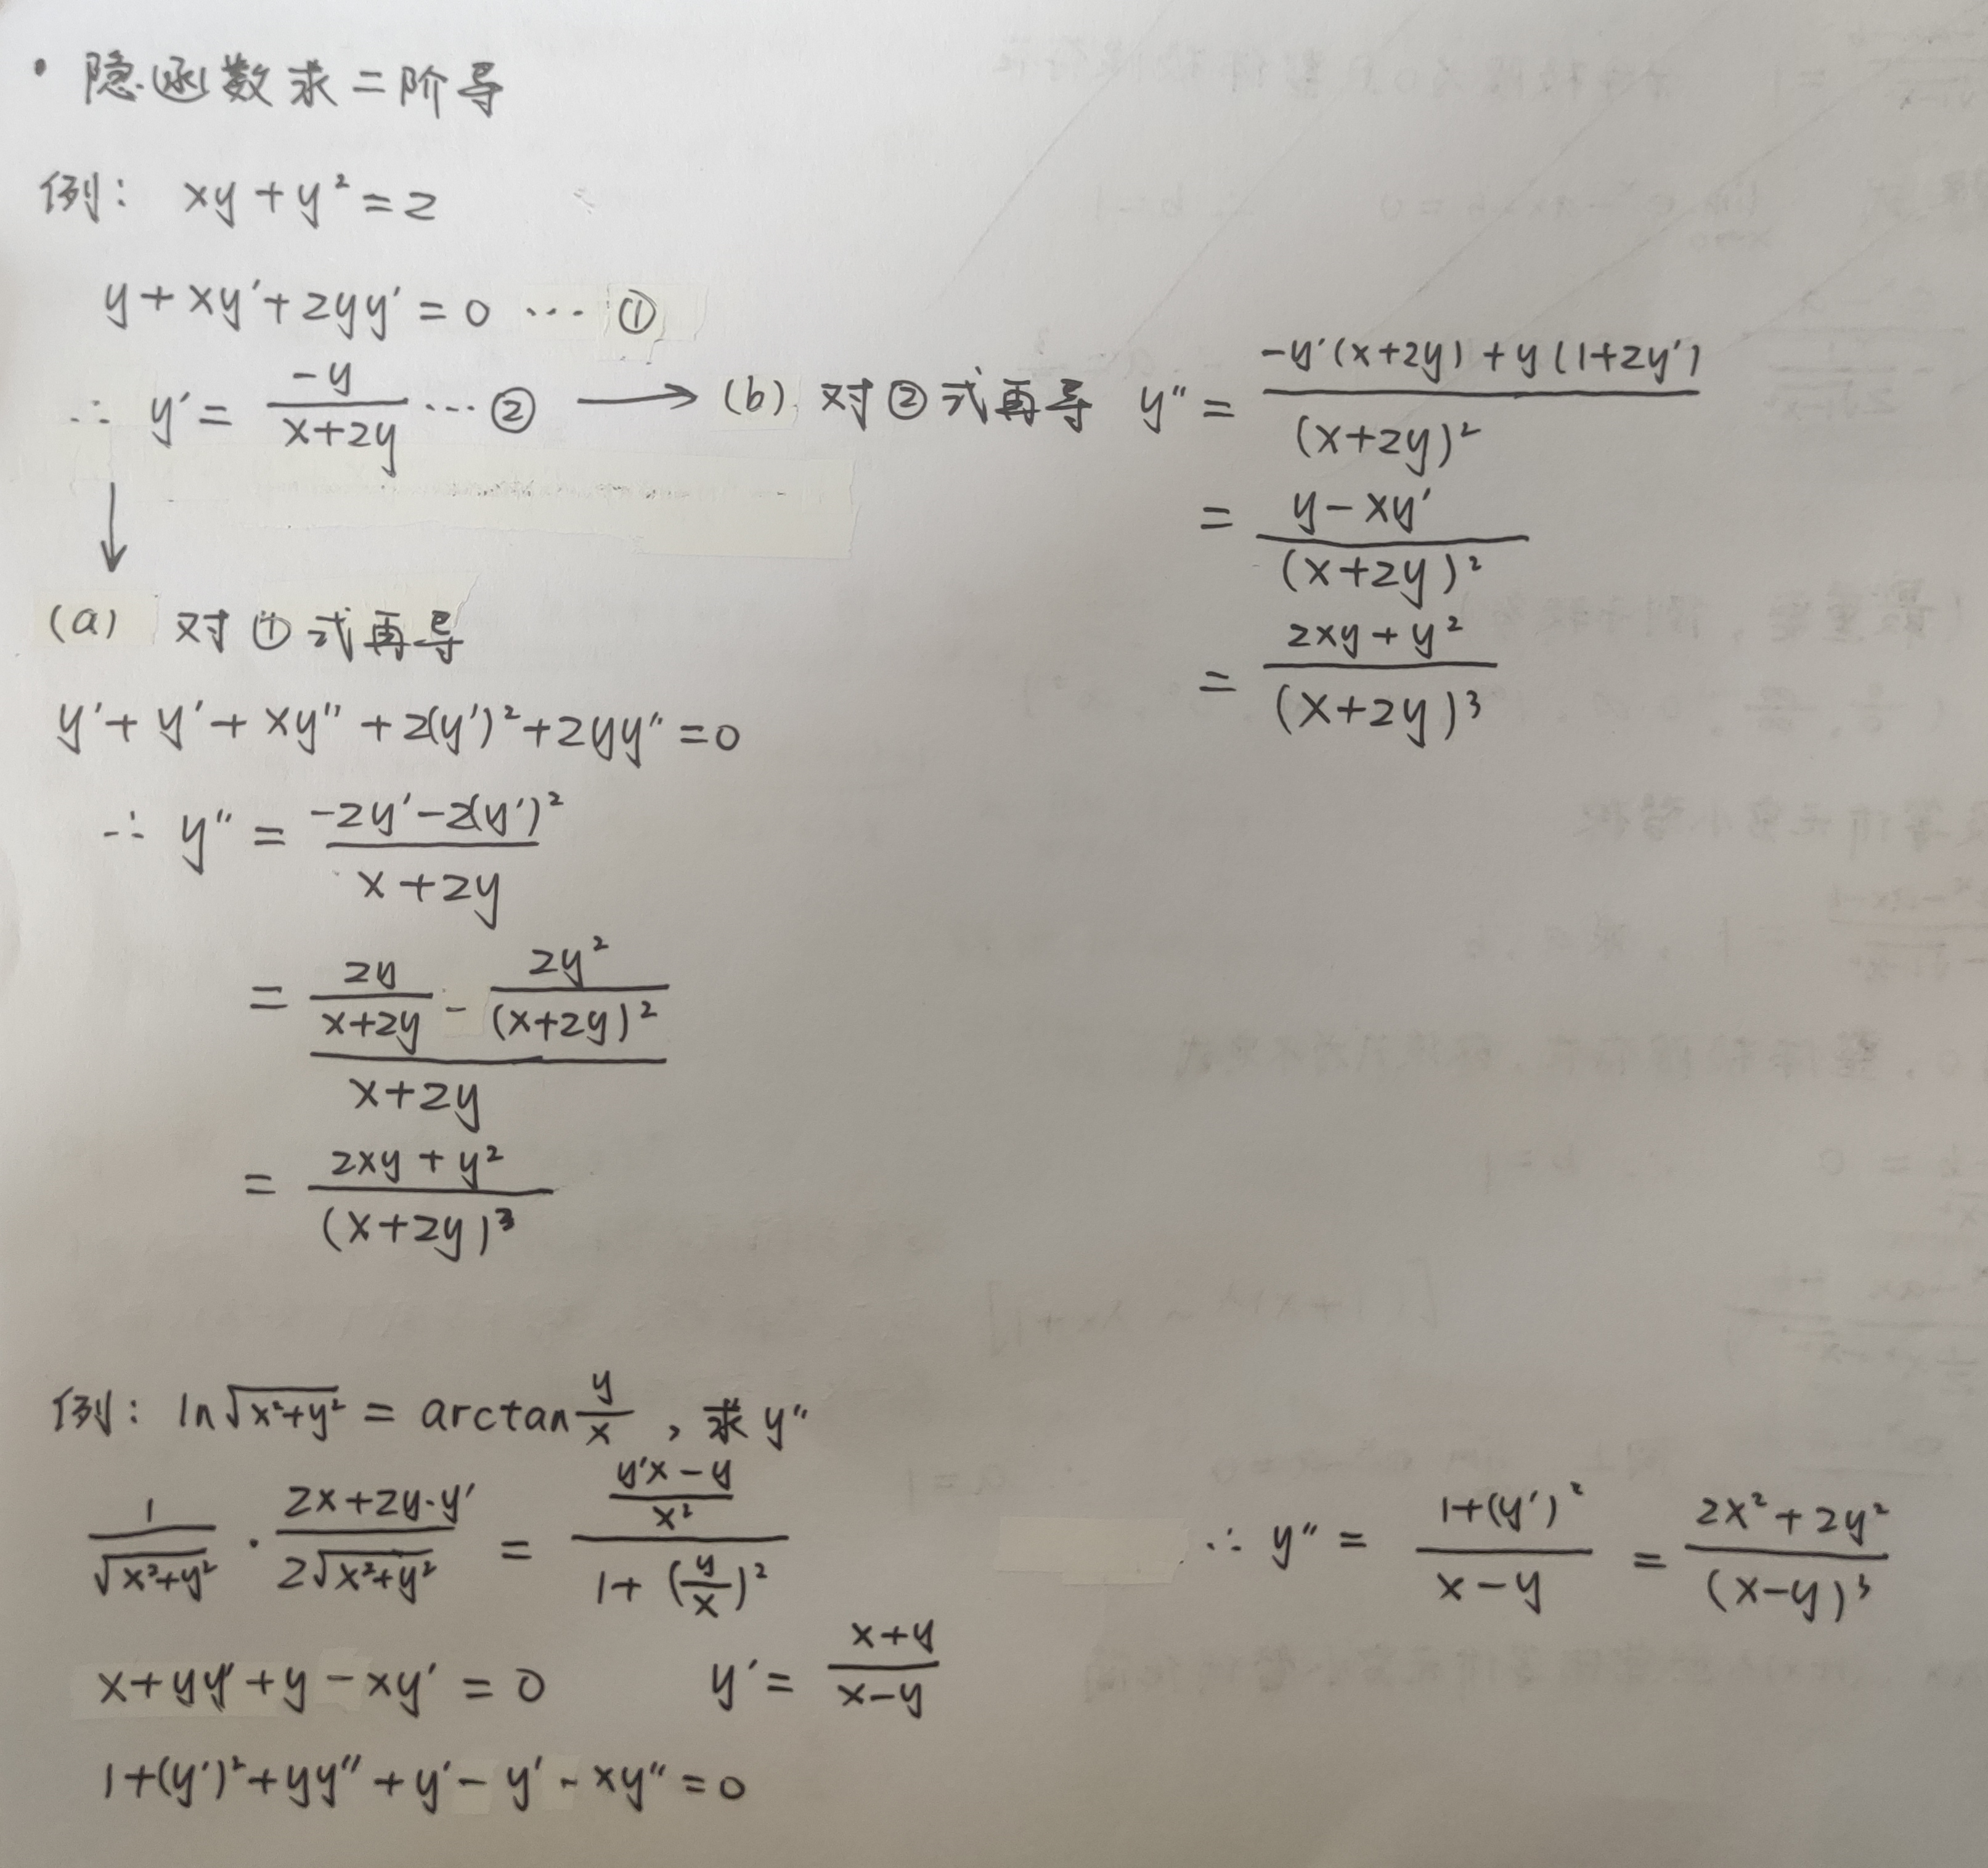 · 隐函数求二阶导
例: xy + y² = 2
y + xy' + 2yy' = 0 … ①
∴ y' = -y/(x+2y) … ② → (b) 对②式再导 y'' = (-y'(x+2y) + y(1+2y'))/(x+2y)²
= (y - xy')/(x+2y)²
= (2xy + y²)/(x+2y)³
↓
(a) 对①式再导
y' + y' + xy'' + 2(y')² + 2yy'' = 0
∴ y'' = (-2y' - 2(y')²)/(x+2y)
= (2y/(x+2y) - 2y²/(x+2y)²)/(x+2y)
= (2xy + y²)/(x+2y)³
例: ln√(x²+y²) = arctan y/x , 求 y''
1/√(x²+y²) · (2x+2y·y')/(2√(x²+y²)) = ((y'x - y)/x²)/(1+(y/x)²)
x + yy' + y - xy' = 0 y' = (x+y)/(x-y)
1 + (y')² + yy'' + y' - y' - xy'' = 0
∴ y'' = (1+(y')²)/(x-y) = (2x² + 2y²)/(x-y)³